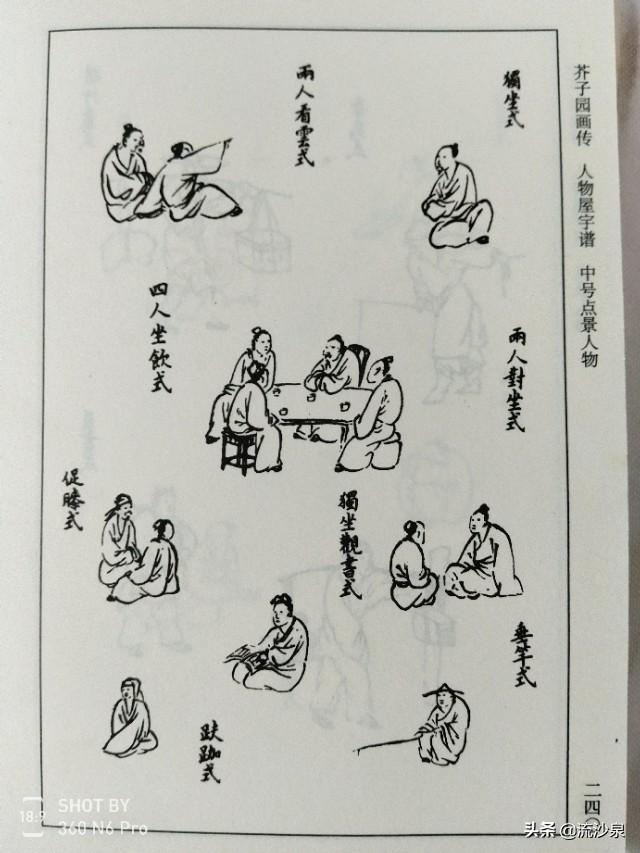 芥子园画传　人物屋宇谱　中号点景人物
獨坐式
兩人看雲式
兩人對坐式
四人坐飲式
獨坐觀書式
促膝式
垂竿式
趺跏式
二四〇
SHOT BY
360 N6 Pro
18:9
头条 @流沙泉